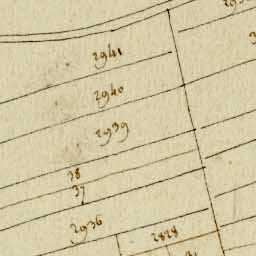 2941
2940
2939
38
37
2936
2828